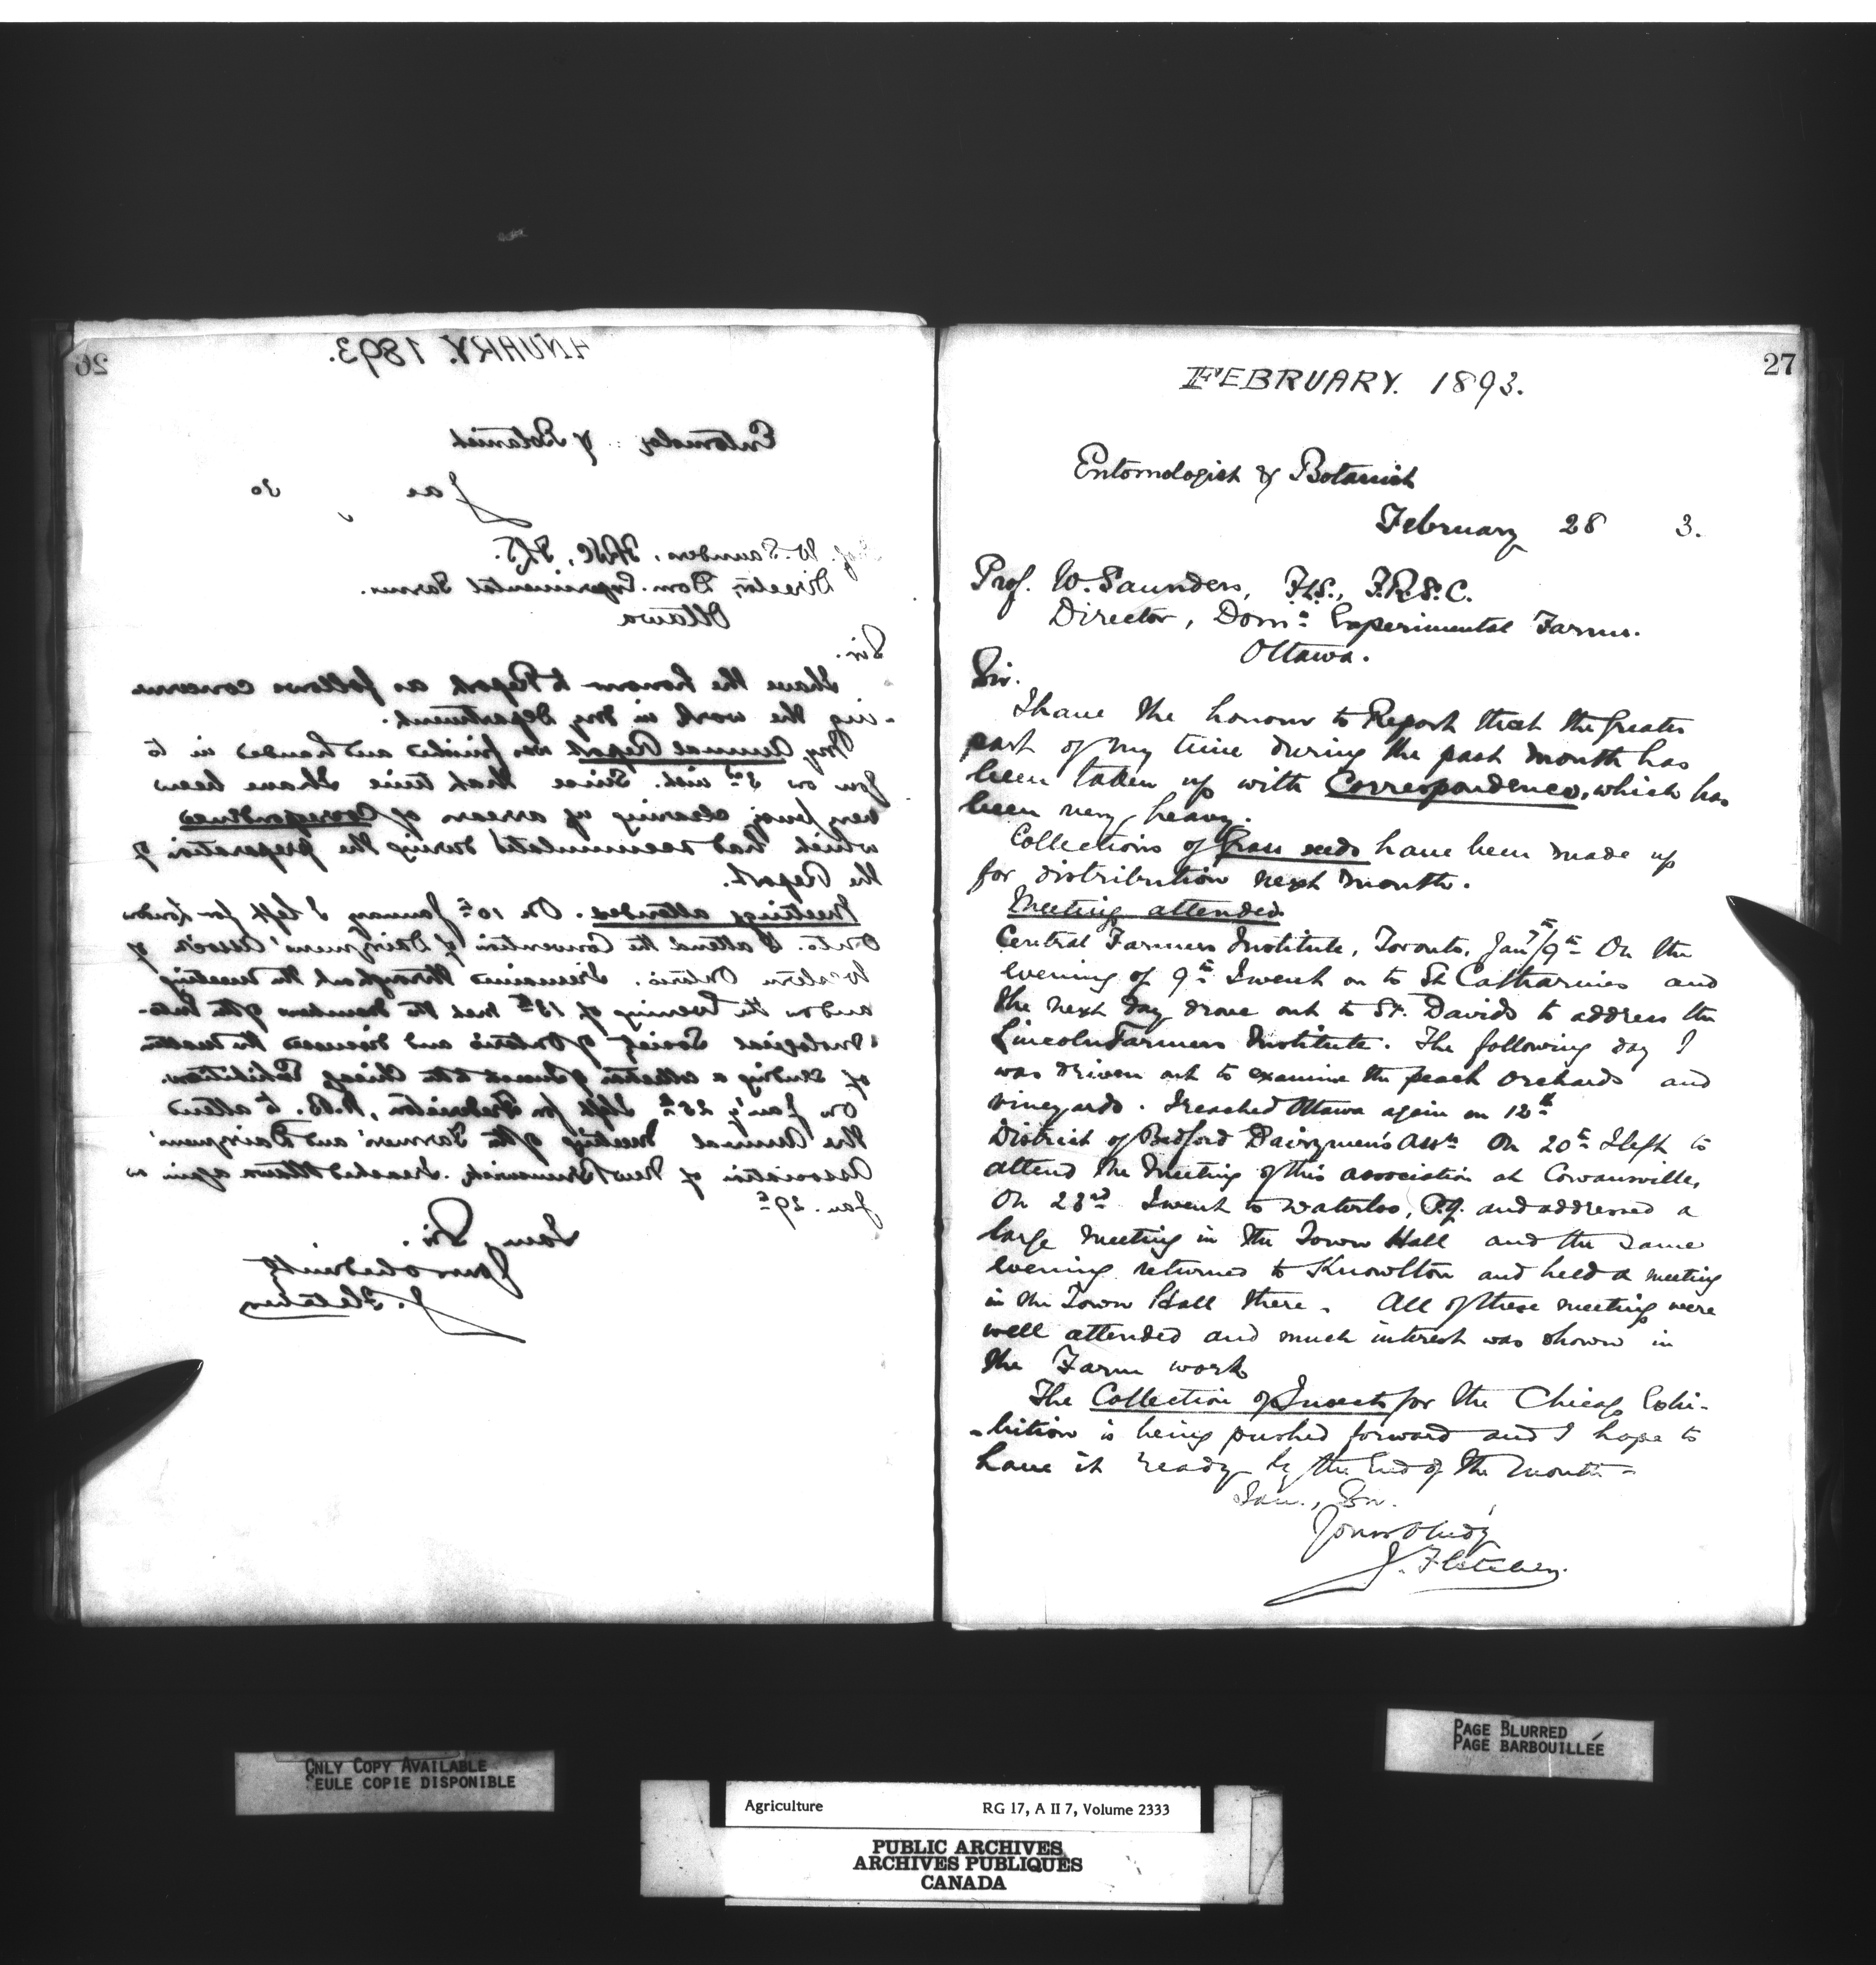 26
JANUARY. 1893.
Entomologist & Botanist
Jan 30
Prof. W. Saunders, FRSC, FLS.
Director, Dom. Experimental Farms.
Ottawa
Sir.
I have the honour to Report as follows concern
-ing the work in my Department.
My Annual Report was finished and handed in to
you on 3rd inst. Since that time I have been
very busy clearing up arrears of Correspondence
which had accumulated during the preparation of
the Report.
Meetings attended. On 10th January I left for London
Onto. to attend the Convention of Dairymens' Assoc'n of
Western Ontario. I remained throughout the meeting
and on the Evening of 13th met the members of the Ento-
-mological Society of Ontario and discussed the matter
of sending a collection of Insects to the Chicago Exhibition.
On Jan'y 25th I left for Fredericton, N.B. to attend
the Annual Meeting of the Farmers' and Dairymens'
Association of New Brunswick. I reached Ottawa again on
Jan. 29th
I am, Sir.
Your obediently
J. Fletcher
27
FEBRUARY. 1893.
Entomologist & Botanist
February 28 3.
Prof. W. Saunders, F.L.S., F.R.S.C.
Director, Domn Experimental Farms.
Ottawa.
Sir.
I have the honour to Report that the greater
part of my time during the past month has
been taken up with Correspondence, which has
been very heavy.
Collections of Grass seeds have been made up
for distribution next month.
Meeting attended
Central Farmers Institute, Toronto, Jan 7th/9th On the
evening of 9th I went on to St Catharines and
the next day drove out to St. Davids to address the
Lincoln Farmers Institute. The following day I
was driven out to examine the peach orchards and
vineyards. I reached Ottawa again on 12th
District of Bedford Dairymen's Assn On 20th I left to
attend the meeting of this association at Cowansville.
On 23rd I went to Waterloo, P.Q. and addressed a
large meeting in the Town Hall and the same
evening returned to Knowlton and held a meeting
in the Town Hall there. All of these meeting were
well attended and much interest was shown in
the Farm work
The Collection of Insects for the Chicago Exhi-
-bition is being pushed forward and I hope to
have it ready by the End of the month -
I am, Sir.
Yours obedy
J. Fletcher.
ONLY COPY AVAILABLE
SEULE COPIE DISPONIBLE
PAGE BLURRED
PAGE BARBOUILLÉE
Agriculture RG 17, A II 7, Volume 2333
PUBLIC ARCHIVES
ARCHIVES PUBLIQUES
CANADA